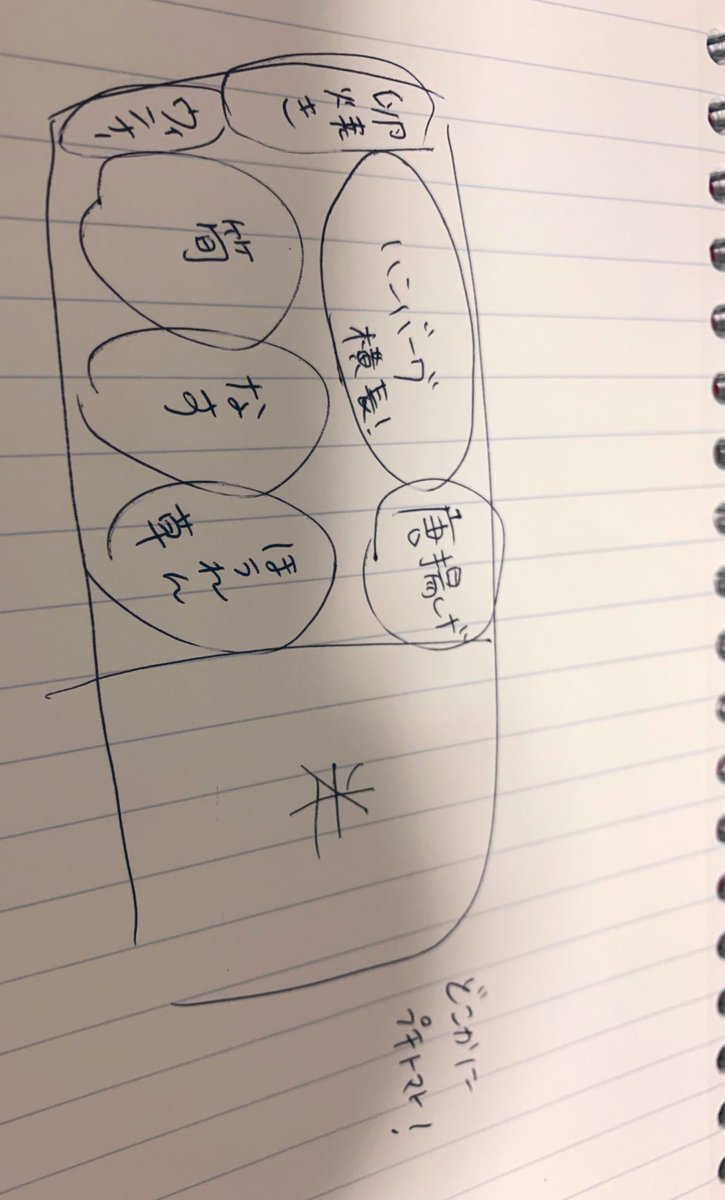 卵焼き
ハンバーグ
横長!
唐揚げ
ウィ
ンナ
筍
なす
ほうれん
草
米
どこかに
プチトマト!